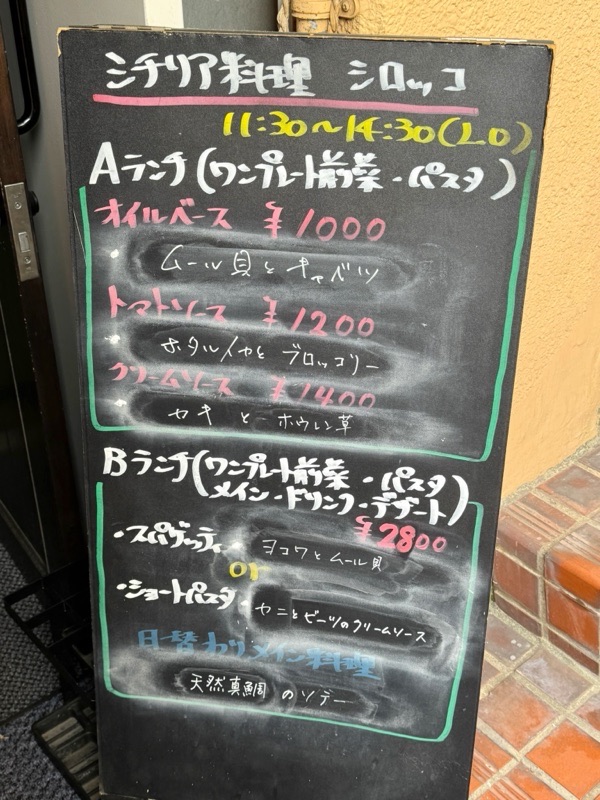 シチリア料理 シロッコ
11:30〜14:30(LO)
Aランチ(ワンプレート前菜・パスタ)
オイルベース ¥1000
・ムール貝とキャベツ
トマトソース ¥1200
・ホタルイカと ブロッコリー
クリームソース ¥1400
・カキ と ホウレン草
Bランチ(ワンプレート前菜・パスタ
メイン・ドリンク・デザート)
¥2800
・スパゲッティ・ヨコワとムール貝
or
・ショートパスタ・カニとビーツのクリームソース
日替わりメイン料理
天然真鯛 のソテー